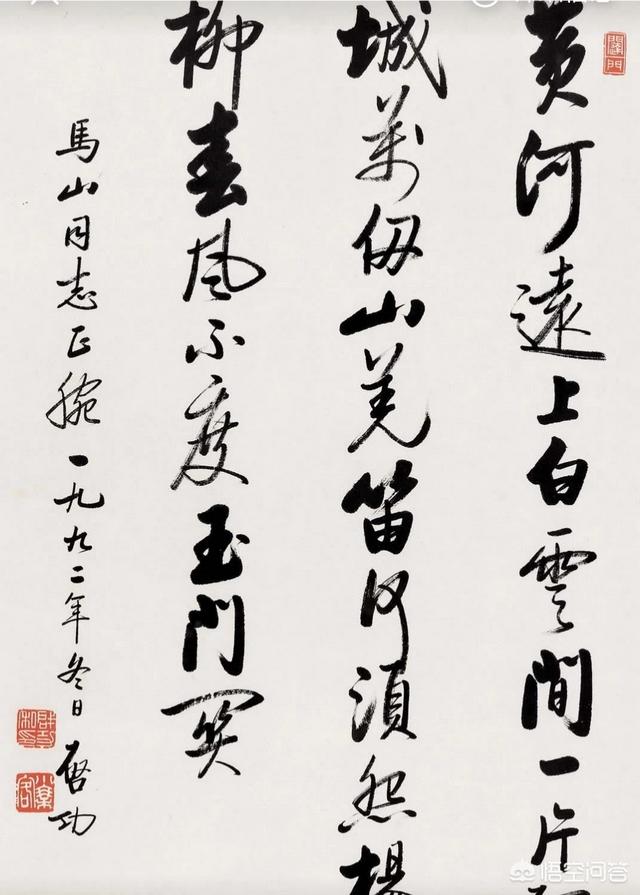 黄河遠上白雲間一片
城万仞山羌笛何須怨楊
柳春風不度玉門関
馬山同志正腕一九九二年冬日啓功
悟空问答